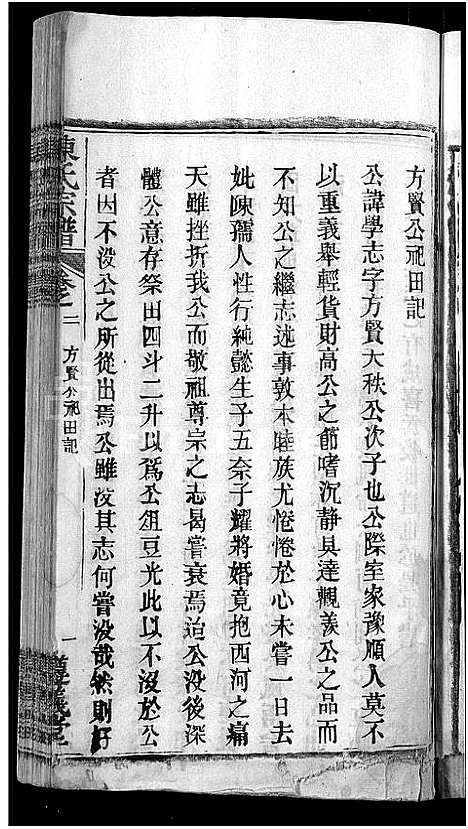 方賢公祀田記
公諱學志字方賢大秩公次子也公際室家豫順人莫不
以重義舉輕貨財高公之節嗜沉靜具達觀羨公之品而
不知公之繼志述事敦本睦族尤惓惓於心未嘗一日去
妣陳孺人性行純懿生子五奈子耀將婚竟抱西河之痛
天雖挫折我公而敬祖尊宗之志曷嘗衰焉治公没後深
體公意存祭田四斗二升以爲公俎豆光此以不沒於公
者因不没公之所從出焉公雖没其志何嘗没哉然則好
陳氏宗譜 卷之二 方賢公祀田記 一